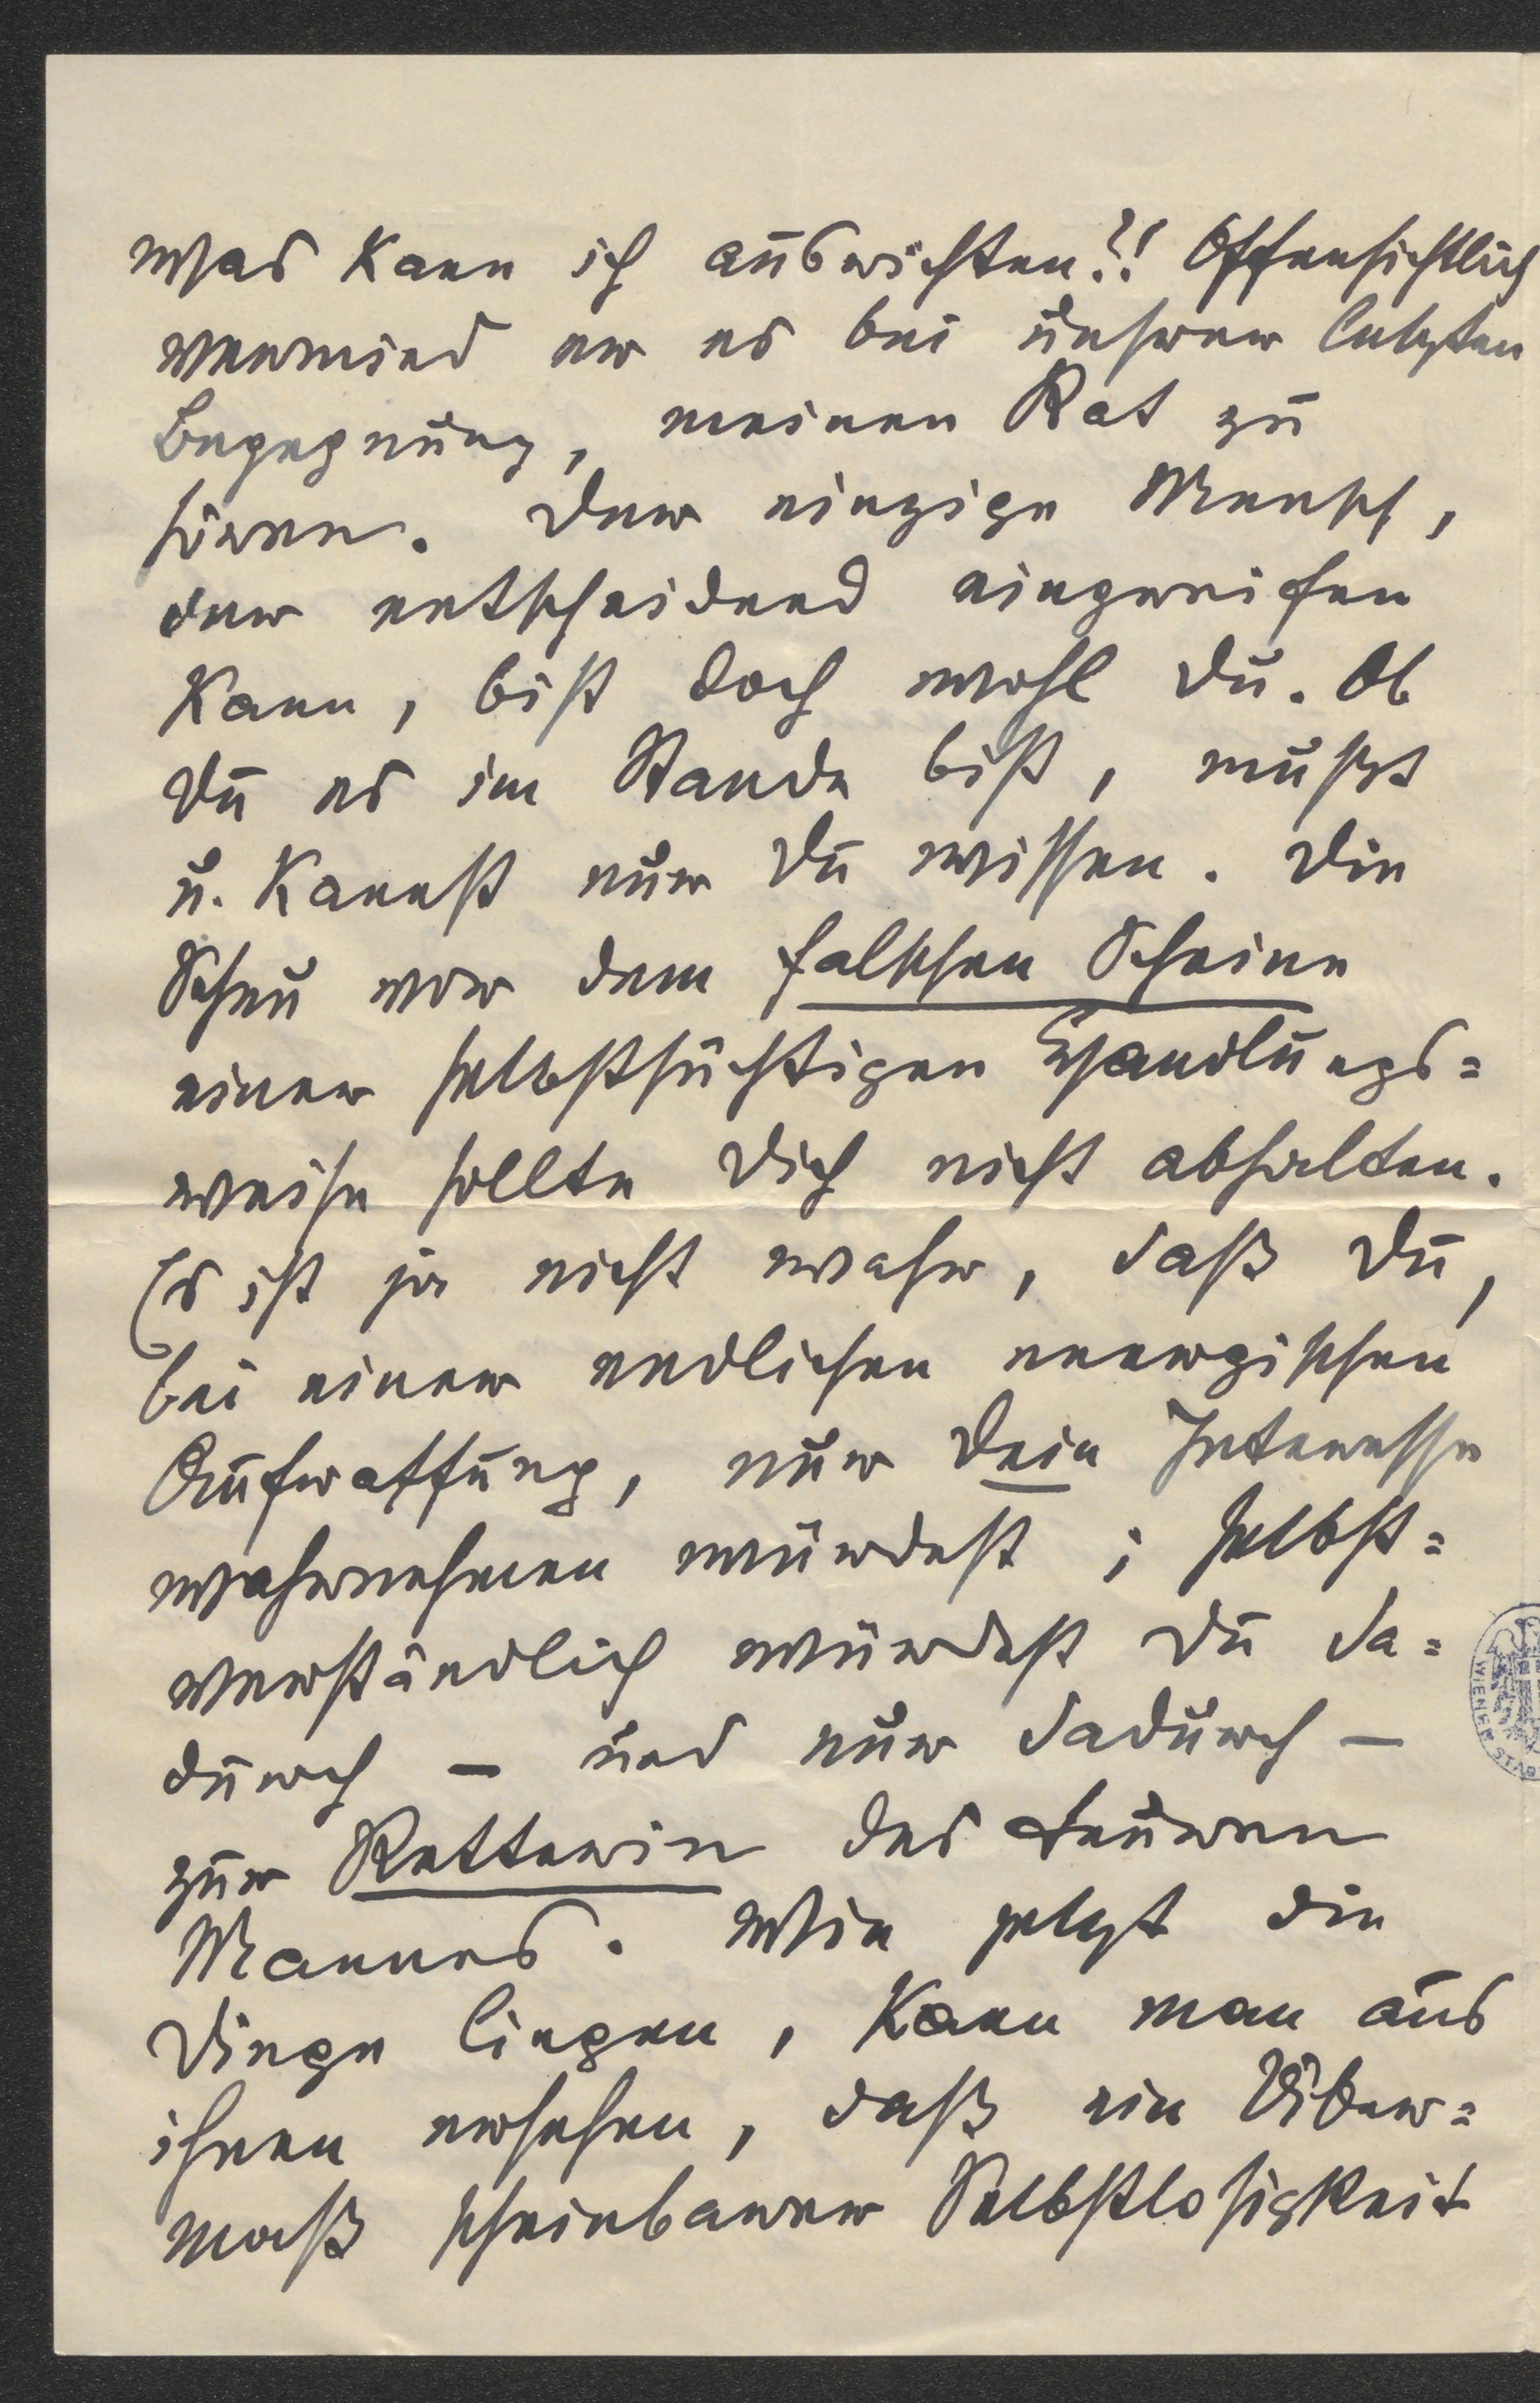 Was kann ich ausrichten?! Offensichtlich
vermied er es bei unsrer letzten
Begegnung, meinen Rat zu
hören. Der einzige Mensch,
der entscheidend eingreifen
kann, bist doch wohl Du. Ob
Du es im Stande bist, mußt
u. kannst nur Du wissen. Die
Scheu vor dem falschen Scheine
einer selbstsüchtigen Handlungs=
weise sollte Dich nicht abhalten.
Es ist ja nicht wahr, daß Du,
bei einer endlichen energischen
Aufraffung, nur Dein Interesse
wahrnehmen würdest; selbst=
verständlich würdest Du da=
durch – und nur dadurch –
zur Retterin des teuren
Mannes. Wie jetzt die
Dinge liegen, kann man aus
ihnen ersehen, daß ein Über=
maß scheinbarer Selbstlosigkeit
WIENER STA